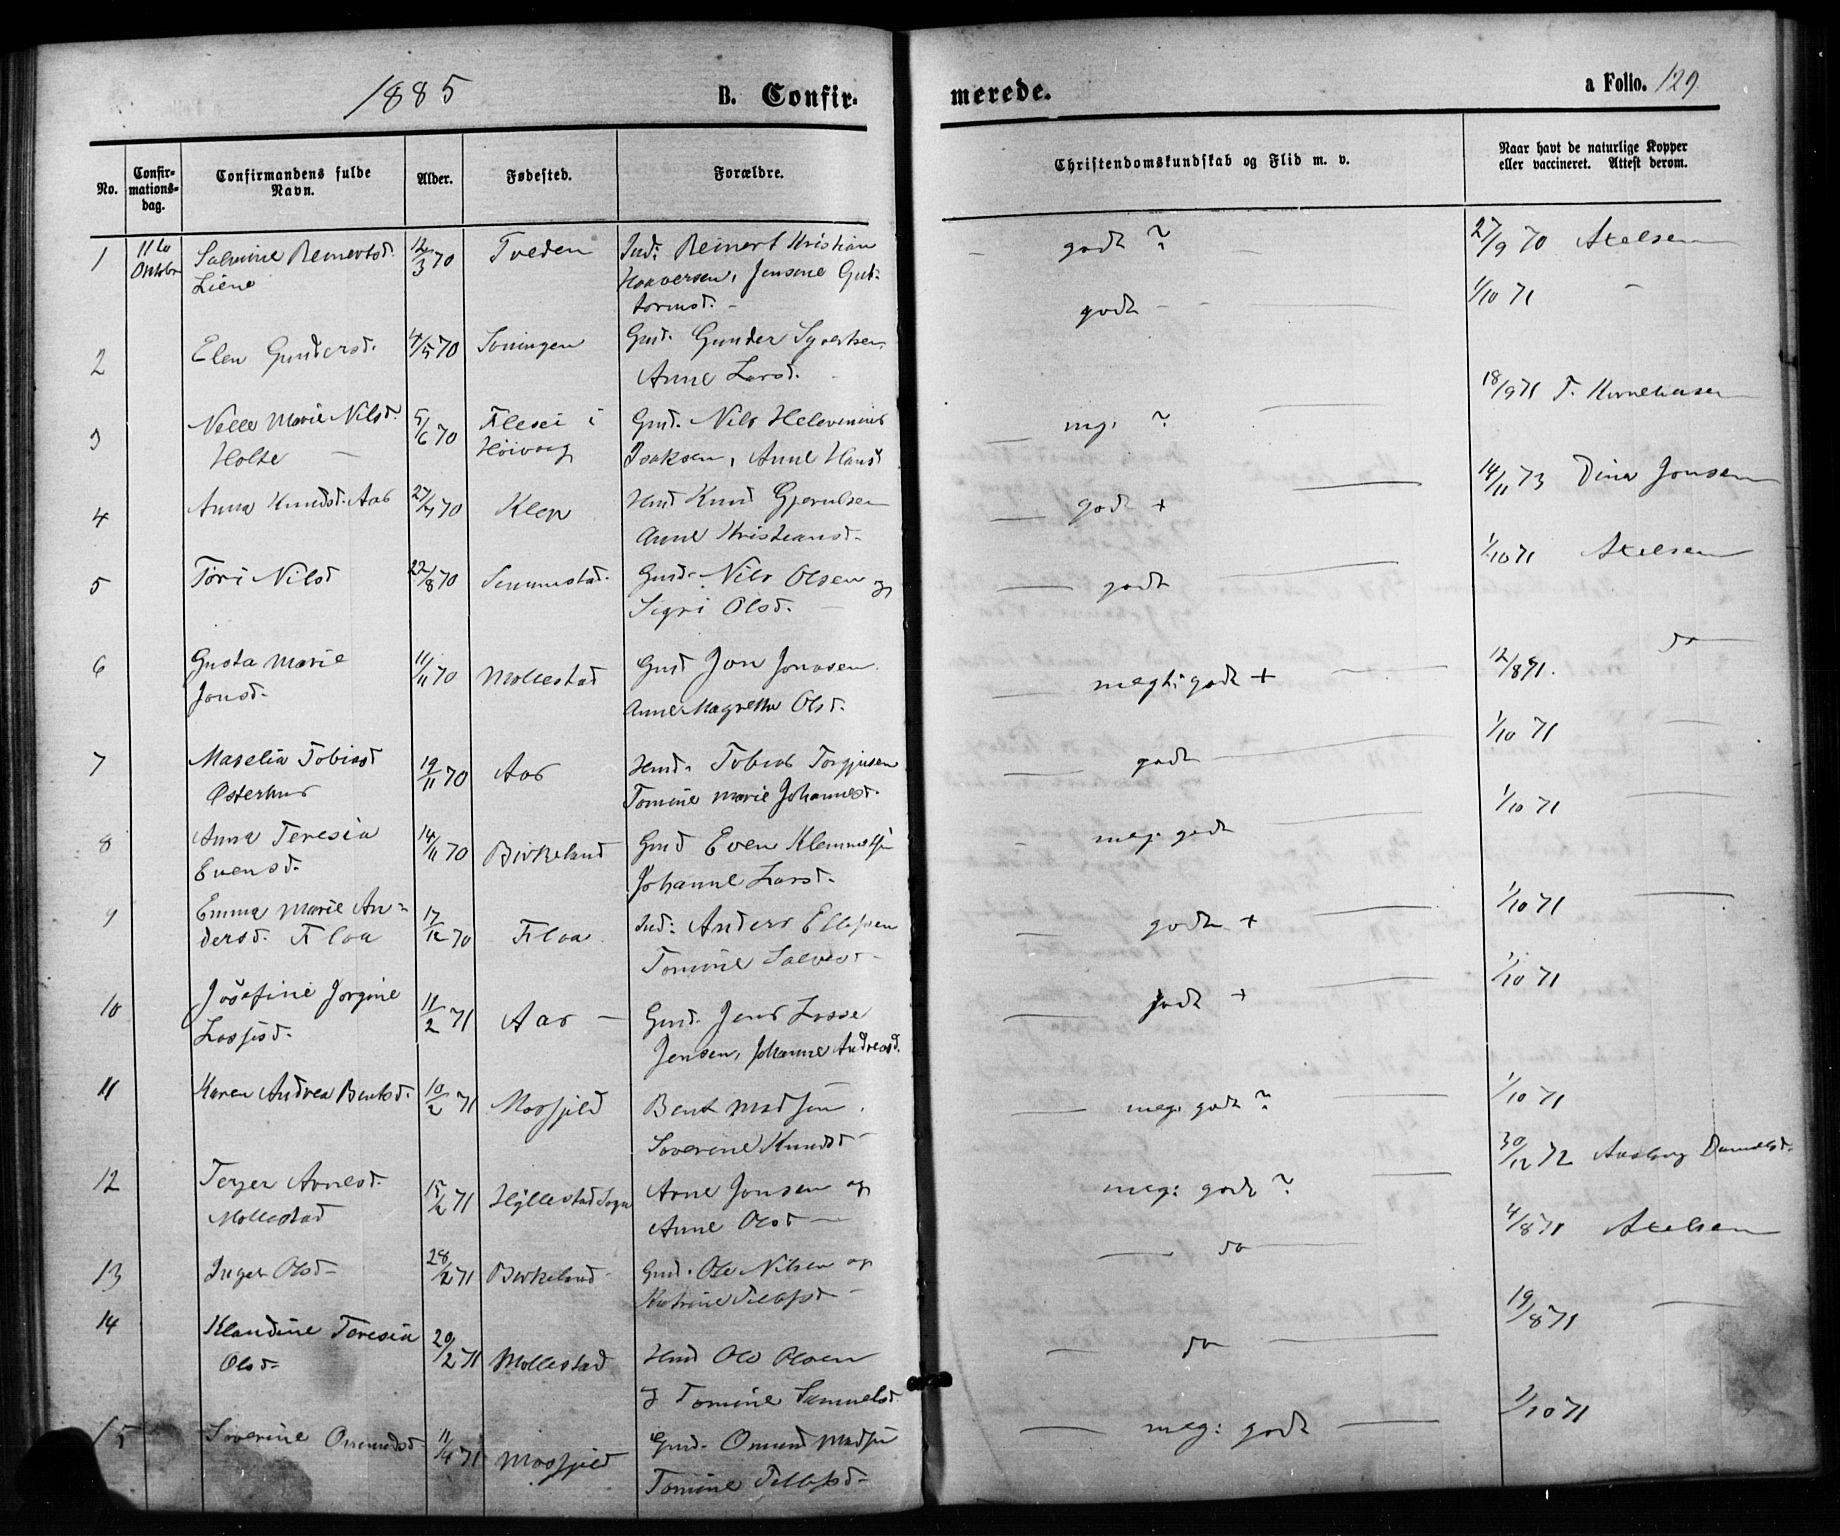 1885 B. Confirmerede. a Folio. 129
No. Confirmationsdag. Confirmandens fulde Navn. Alder. Fødested. Forældre. Christendomskundskab og Flid m. v. Naar havt de naturlige Kopper eller vaccineret. Attest derom.
1 11te Oktober Salmine Reinertsd. 12/3 70 Tveden Ind: Reinert Kristian godt ? 27/9 70 Axelsen
Liene Haaversen, Jensine Gut-
tormsd.
2 Elen Gundersd. 4/5 70 Gmd. Gunder Syvertsen godt 1/10 71
Anne Larsd.
3 Nelle Marie Nilsd. 5/6 70 i Gmd. Nils meg. ? 18/9 71 T.
Holte Høivaag Isaksen, Anne Hansd
4 Anna Knudsd. Aas 27/7 70 Klep Hmd Knud godt + 14/11 73 Dina Jonsen
Anne Kristiansd.
5 Tori Nilsd 22/8 70 Gmd. Nils Olsen og godt 1/10 71 Axelsen
Sigri Olsd.
6 Gusta Marie 11/11 70 Mollestad Gmd Jon Jonasen megti godt + 12/8 71. do
Jonsd. Anne Magrethe Olsd.
7 Maselia Tobiasd 19/11 70 Aas Hmd. Tobias Torgjusen godt 1/10 71
Østerhus Tomine Marie Johannesd.
8 Anna Teresia 14/11 70 Birkeland Gmd Even Klemmetsen meg. godt 1/10 71
Evensd. Johanne Larsd.
9 Emma Marie An- 17/12 70 Floa Ind: Anders Ellefsen godt + 1/10 71
dersd. Floa Tomine Salvesd
10 Josefine Jorgine 11/2 71 Aas Gmd. Jens Lasse godt + 1/10 71
Lassesd. Jensen, Johanne Andreasd.
11 Karen Andrea Bentsd. 10/2 71 Mosfjeld Bent Madsen meg. godt ? 1/10 71
Soverine Knudsd
12 Terjer Arnesd. 15/2 71 Hyllestad Sogn Arne Jonsen og meg: godt ? 30/12 72
Mollestad Anne Olsd
13 Inger Olsd 28/2 71 Birkeland Gmd. Ole Nilsen og do 4/8 71 Axelsen
Katrine Tellefsd
14 Klaudine Teresia 20/2 71 Mollestad Hmd Ole Olsen do 19/8 71
Olsd. og Tomine Samuelsd.
15 Soverine Omundsd 11/4 71 Mosfjeld Gmd. Omund Madsen meg: godt 1/10 71
Tomine Tellefsd.